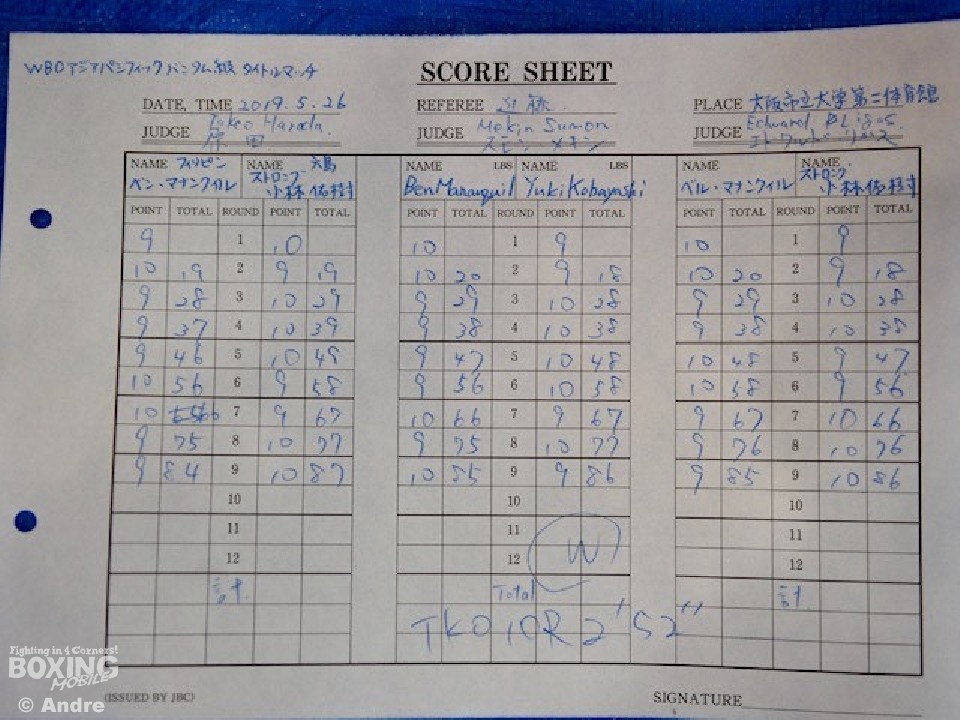 WBOアジアパシフィックバンタム級 タイトルマッチ
SCORE SHEET
DATE, TIME 2019.5.26 REFEREE 近藤 PLACE 大阪市立大学第二体育館
JUDGE Takeo Harada JUDGE Mekin Sumon JUDGE Edward
原田 スモン メキン
NAME フィリピン NAME 六島 NAME LBS NAME LBS NAME NAME
ストロング ストロング
ベン・マナンクイル 小林佑樹 Ben Mananquil Yuki Kobayashi ベル・マナンクイル 小林佑樹
POINT TOTAL ROUND POINT TOTAL POINT TOTAL ROUND POINT TOTAL POINT TOTAL ROUND POINT TOTAL
9 1 10 10 1 9 10 1 9
10 19 2 9 19 10 20 2 9 18 10 20 2 9 18
9 28 3 10 29 9 29 3 10 28 9 29 3 10 28
9 37 4 10 39 9 38 4 10 38 9 38 4 10 38
9 46 5 10 49 9 47 5 10 48 10 48 5 9 47
10 56 6 9 58 9 56 6 10 58 10 58 6 9 56
10 7 9 67 10 66 7 9 67 9 67 7 10 66
9 75 8 10 77 9 75 8 10 77 9 76 8 10 76
9 84 9 10 87 10 85 9 9 86 9 85 9 10 86
10 10 10
11 11 11
12 12 W 12
計 Total 計
TKO 10R 2'52"
Fighting in 4 Corners!
BOXING
MOBILE
(ISSUED BY JBC) SIGNATURE
© Andre